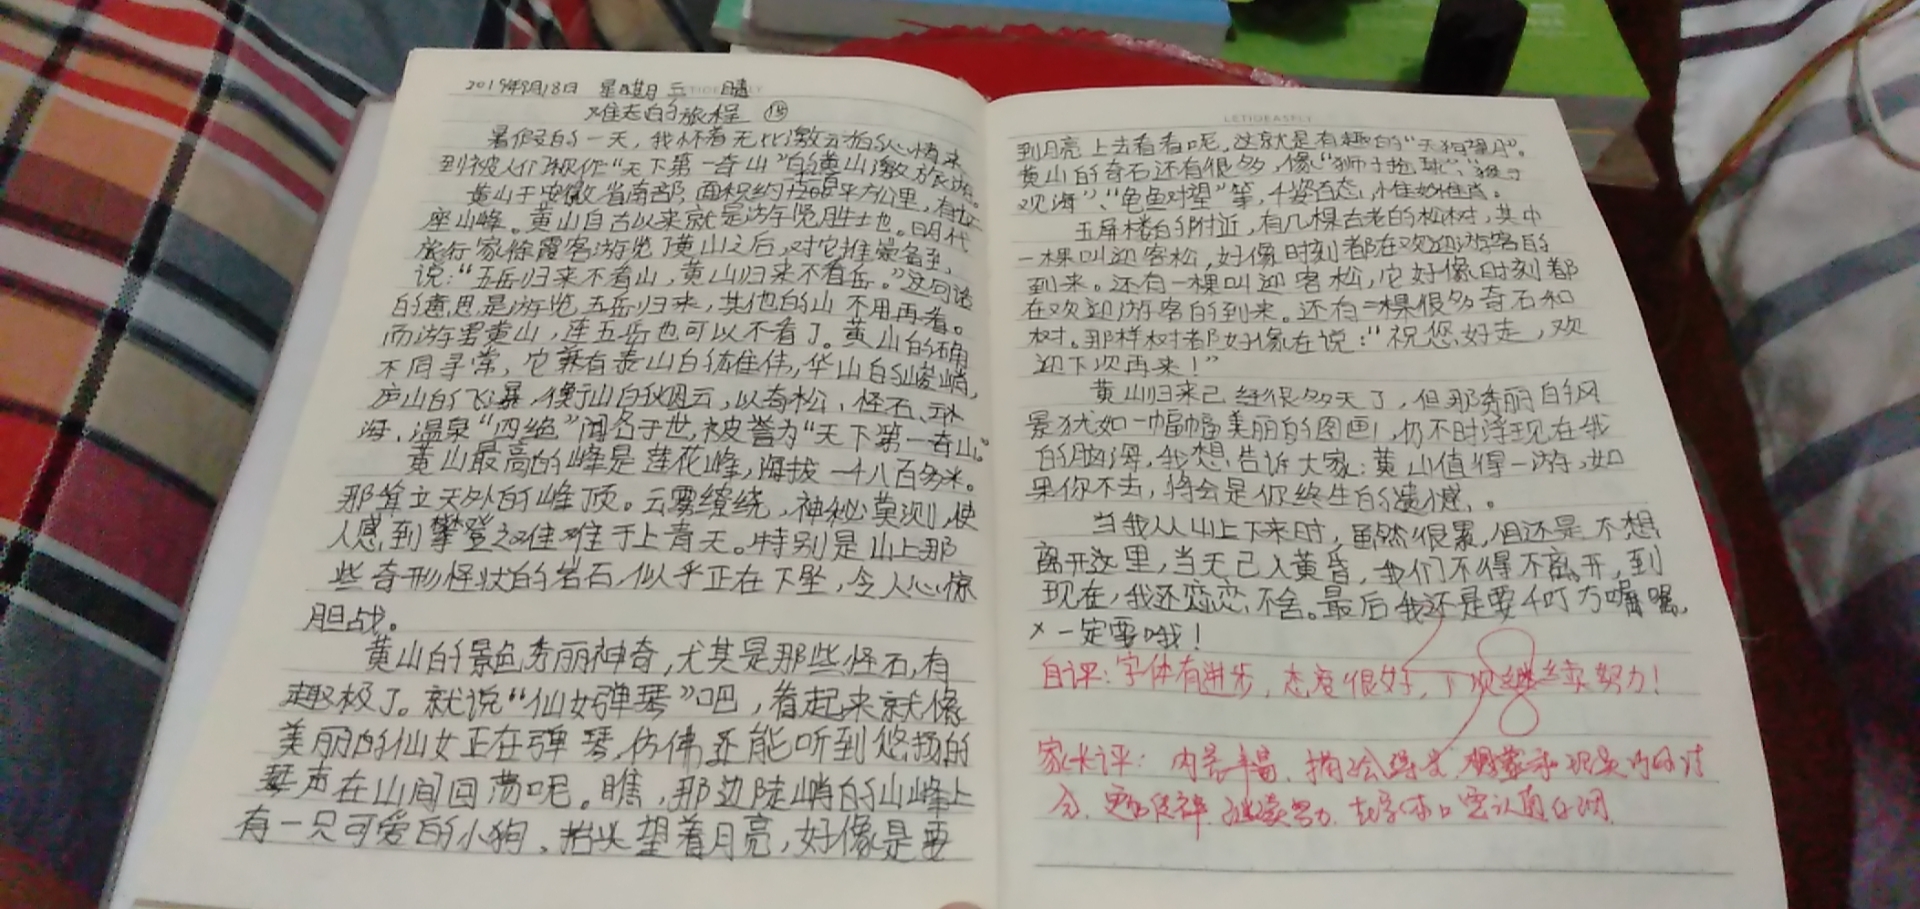 2019年9月18日 星期三 晴
难忘的旅程 ⑮
暑假的一天，我怀着无比激动的心情来
到被人们称作“天下第一奇山”的黄山激
黄山于安徽省南部，面积约 平方公里，有
座山峰。黄山自古以来就是游览胜土也。明代
旅行家徐霞客游览了黄山之后，对它推崇备至，
说：“五岳归来不看山，黄山归来不看岳。”这句话
的意思是游览五岳归来，其他的山不用再看。
而游罢黄山，连五岳也可以不看了。黄山的确
不同寻常，它兼有泰山的雄伟，华山的峻峭，
庐山的飞暴，衡山的烟云，以奇松、怪石、云
海、温泉“四绝”闻名于世，被誉为“天下第一奇山。”
黄山最高的峰是莲花峰，海拔一千八百多米。
那耸立天外的峰顶。云雾缭绕，神秘莫测，使
人感到攀登之难难于上青天。特别是山上那
些奇形怪状的岩石似乎正在下坠，令人心惊
胆战。
黄山的景色秀丽神奇，尤其是那些怪石，有
趣极了。就说“仙女弹琴”吧，看起来就像
美丽的仙女正在弹琴，仿佛还能听到悠扬的
琴声在山间回荡呢。瞧，那边陡峭的山峰上
有一只可爱的小狗、抬头望着月亮，好像是要
LETIDEASFLY
到月亮上去看看呢，这就是有趣的“天狗望月”。
黄山的奇石还有很多，像“狮子抢球”、“猴子
观海”、“龟鱼对望”等，千姿百态，惟妙惟肖。
玉屏楼的附近，有几棵古老的松树，其中
一棵叫迎客松，好像时刻都在欢迎游客的
到来。还有一棵叫迎客松，它好像时刻都
在欢迎游客的到来。还有 棵很多奇石和
树。那样树都好像在说：“祝您好走，欢
迎下次再来！”
黄山归来已经很多天了，但那秀丽的风
景犹如一幅幅美丽的图画，仍不时浮现在我
的脑海，我想告诉大家：黄山值得一游，如
果你不去，将会是你终生的遗憾。
当我从山上下来时，虽然很累，但还是不想
离开这里，当天已入黄昏，我们不得不离开，到
现在，我还恋恋不舍。最后我还是要千叮万嘱嘱，
一定要哦！
自评：字体有进步，态度很好，下次继续努力！
家长评：内容丰富，描绘 想象和现实
合，更 继续努力，